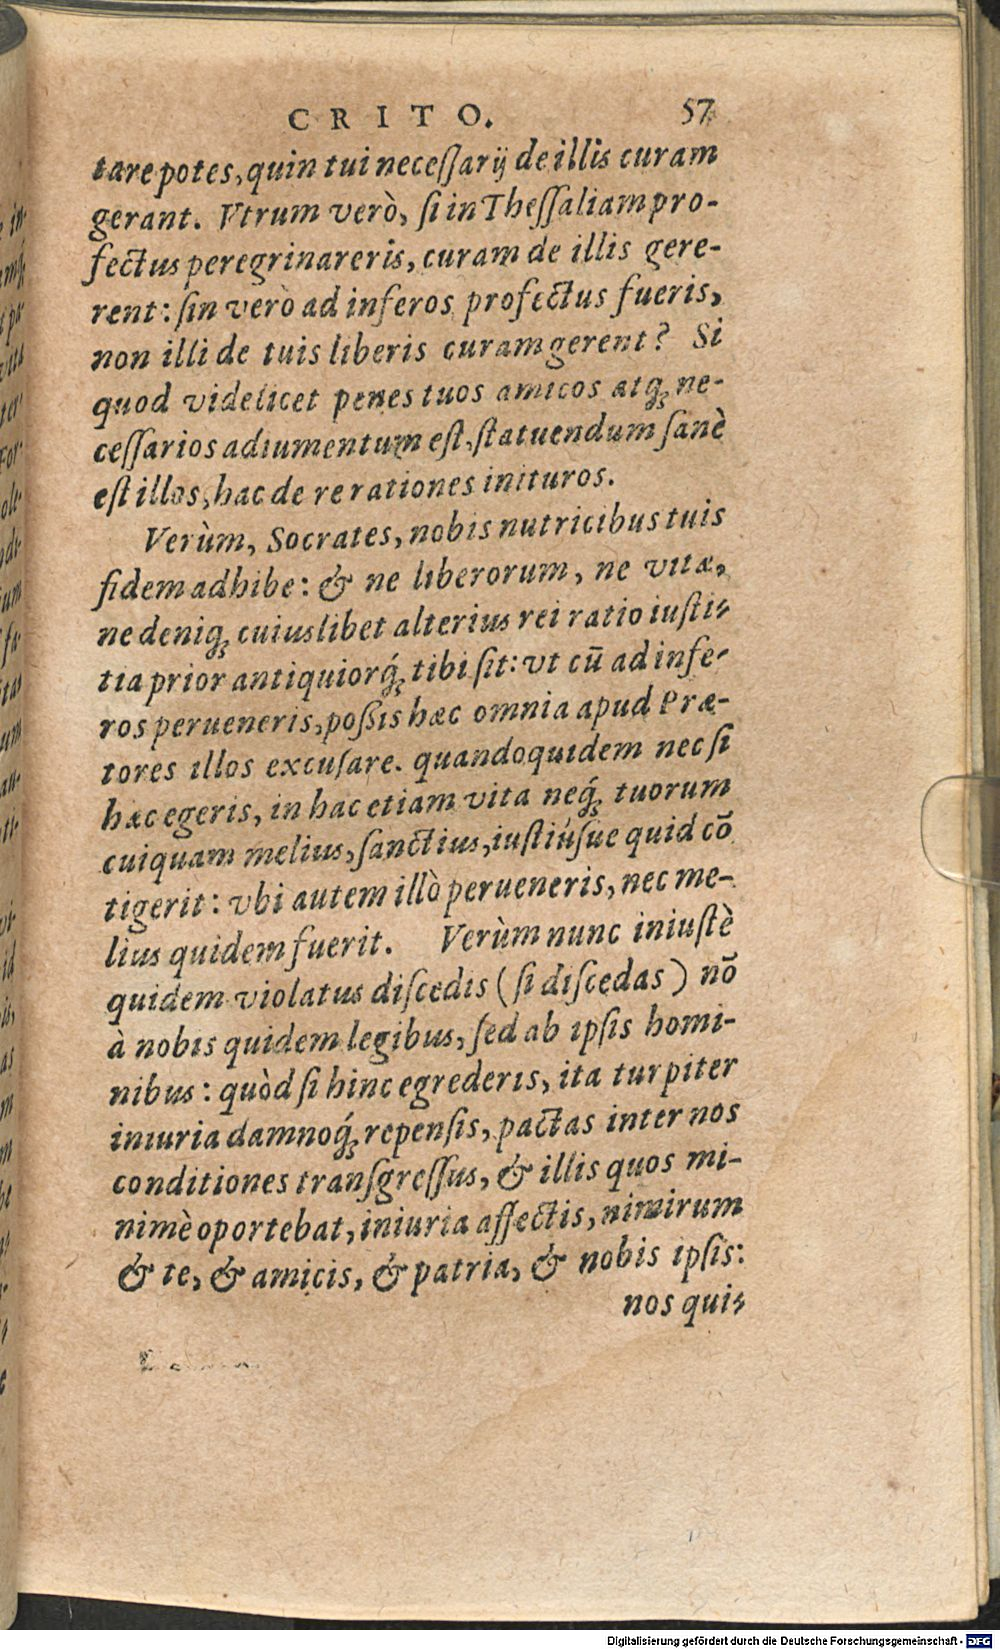 CRITO. 57
tare potes, quin tui neceſſarij de illis curam
gerant. Vtrum verò, ſi in Theſſaliam pro-
fectus peregrinareris, curam de illis gere-
rent: ſin verò ad inferos profectus fueris,
non illi de tuis liberis curam gerent? Si
quod videlicet penes tuos amicos atq; ne-
ceſſarios adiumentum eſt, ſtatuendum ſanè
eſt illos, hac de re rationes inituros.
Verùm, Socrates, nobis nutricibus tuis
fidem adhibe: & ne liberorum, ne vitæ,
ne deniq; cuiuslibet alterius rei ratio iuſti-
tia prior antiquiorq́; tibi ſit: vt cū ad infe-
ros perueneris, poſsis hæc omnia apud Præ-
tores illos excuſare. quandoquidem nec ſi
hæc egeris, in hac etiam vita neq́; tuorum
cuiquam melius, ſanctius, iuſtiúſue quid cō
tigerit: vbi autem illò perueneris, nec me-
lius quidem fuerit. Verùm nunc iniuſtè
quidem violatus diſcedis (ſi diſcedas) nō
à nobis quidem legibus, ſed ab ipſis homi-
nibus: quòd ſi hinc egrederis, ita turpiter
iniuria damnoq́; repenſis, pactas inter nos
conditiones tranſgreſſus, & illis quos mi-
nimè oportebat, iniuria affectis, nimirum
& te, & amicis, & patria, & nobis ipſis:
nos qui-
Digitalisierung gefördert durch die Deutsche Forschungsgemeinschaft - DFG